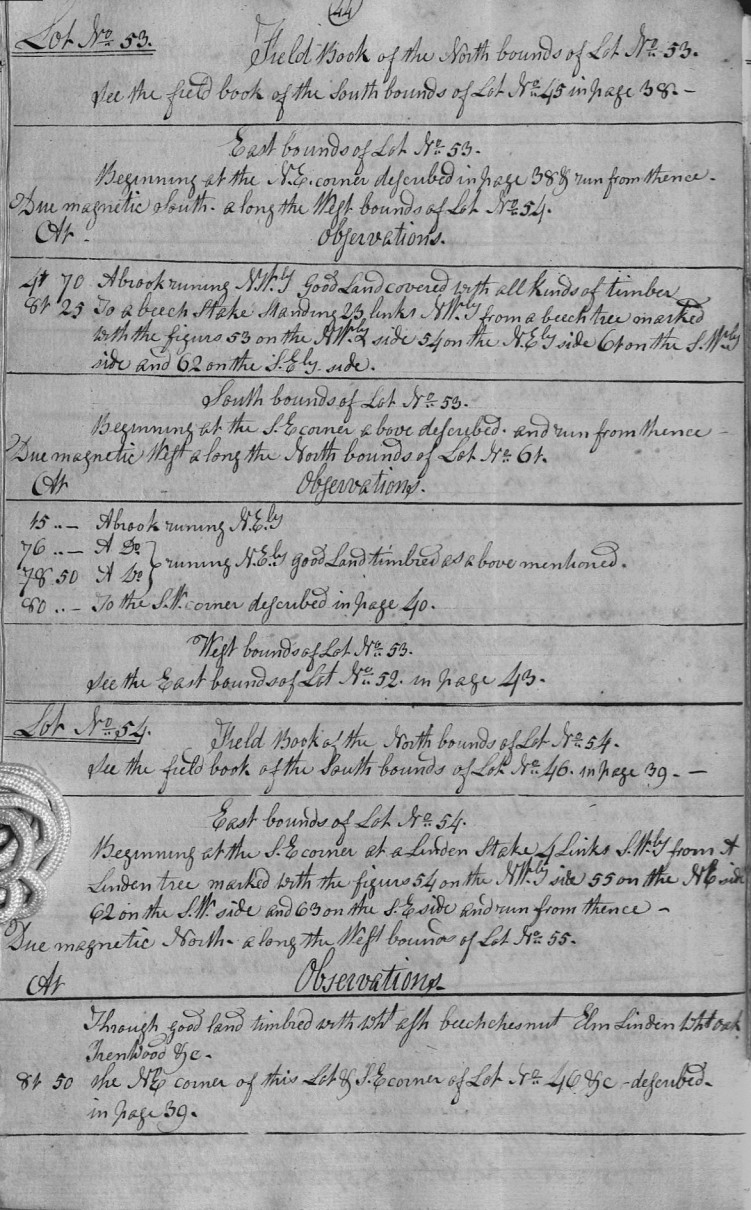 44
Lot No. 53.
Field Book of the North bounds of Lot No. 53.
See the field book of the South bounds of Lot No. 45 in page 38. -
East bounds of Lot No. 53.
Beginning at the N.E. corner described in page 38 & run from thence -
Due magnetic South - along the West bounds of Lot No. 54.
At - Observations.
41 70 A brook runing N.W.ly Good Land covered with all kinds of timber
81 25 To a beech Stake Standing 23 links N.W.ly from a beech tree marked
with the figurs 53 on the N.W.ly side 54 on the N.E.ly side 61 on the S.W.ly
side and 62 on the S.E.ly side.
South bounds of Lot No. 53.
Beginning at the S.E corner above described. and run from thence -
Due magnetic West along the North bounds of Lot No. 61.
At Observations.
15 .. - A brook runing N.E.ly
76 .. - A Do
78 50 A Do } runing N.E.ly good Land timbred as above mentioned.
80 .. - To the S.W. corner described in page 40.
West bounds of Lot No. 53.
See the East bounds of Lot No. 52. in page 43.
Lot No. 54.
Field Book of the North bounds of Lot No. 54.
See the field book of the South bounds of Lot No. 46. in page 39. -
East bounds of Lot No. 54.
Beginning at the S.E corner at a Linden Stake 4 Links S.W.ly from A
Linden tree marked with the figurs 54 on the N.W.ly side 55 on the NE side
62 on the S.W. side and 63 on the S.E side and run from thence -
Due magnetic North - along the West bounds of Lot No. 55.
At Observations.
Through good land timbred with Wht ash beech chesnut Elm Linden Wht oak
Irenwood &c.
81 50 the NE corner of this Lot & S.E corner of Lot No. 46 &c - described.
in page 39.